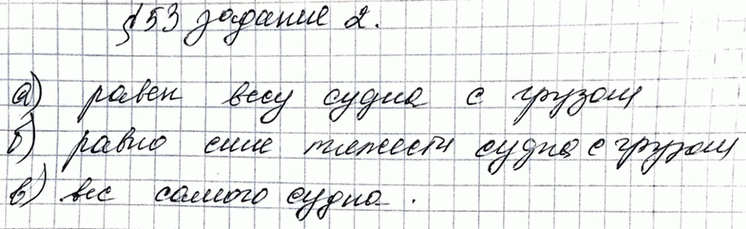 §53 задание 2.
а) равен весу судна с грузом
б) равно силе тяжести судна с грузом
в) вес самого судна.